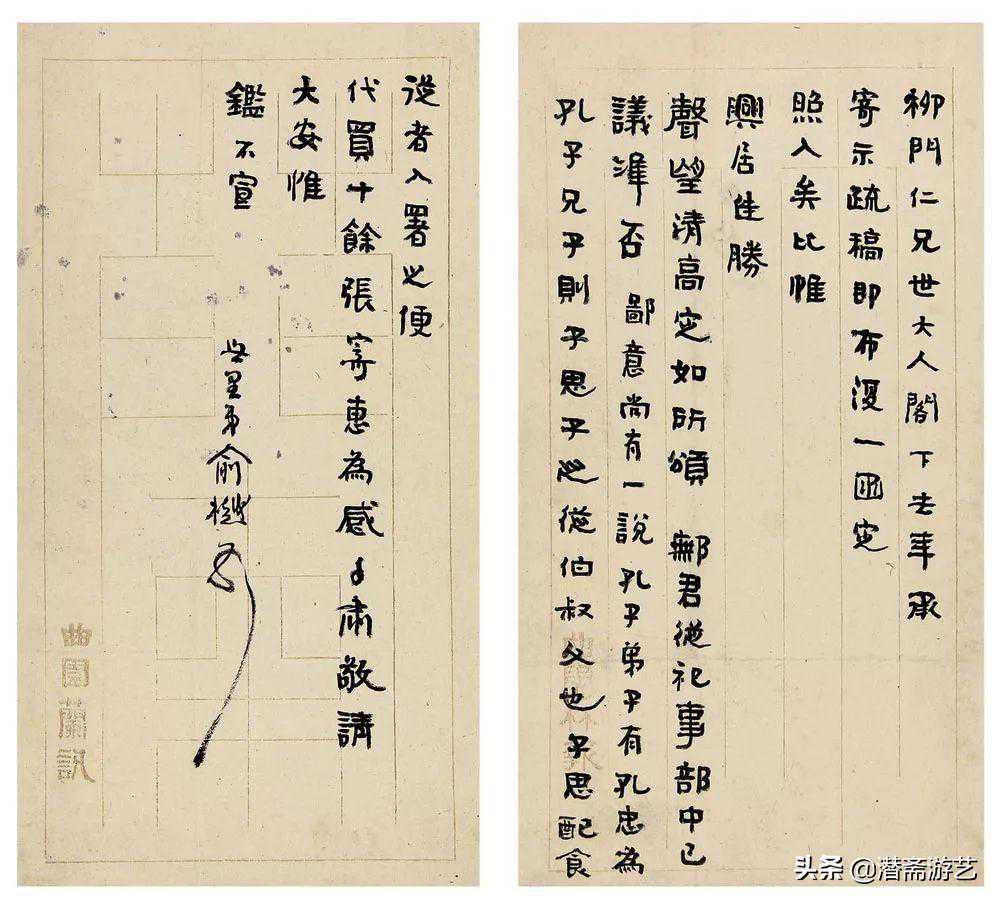 柳門仁兄世大人閣下去年承
寄示疏稿即布復一函定
照入矣比惟
興居佳勝
聲望清高定如所頌 鄦君從祀事部中已
議準否 鄙意尚有一說孔子弟子有孔忠為
孔子兄子則子思子之從伯叔父也子思配食
從者入署之便
代買十餘張寄惠為感手肅敬請
大安惟
鑑不宣
弟俞樾
曲園
头条 @潜斋游艺